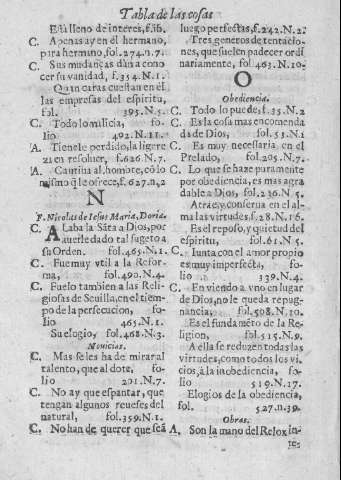 Tabla de las cosas
Està lleno de interes, f. ib.
C. Apenas ay en èl hermano,
para hermano, fol. 274. n. 7.
C. Sus mudanças dàn a cono
cer su vanidad, f. 354. N. 1.
Quan caras cuestan en èl
las empresas del espiritu,
fol. 395. N. 5.
C. Todo lo malicia, fo-
lio 402. N. 11.
A. Tienele perdido, la ligere
za en resoluer, f. 626. N. 7.
A. Cautiua al hombre, cõ lo
mismo q̃ le ofrece, f. 627. n, 2
N
F. Nicolas de Iesus Maria, Doria.
C. ALaba la Sãta a Dios, por
auerle dado tal sugeto a
su Orden. fol. 465. N. 1.
C. Fue muy vtil a la Refor-
ma, fol. 490. N. 4.
C. Fuelo tambien a las Reli-
giosas de Seuilla, en el tiem-
po de la persecucion, fo-
lio 465. N. 1.
Su elogio, fol. 468. N. 3.
Nouicias.
C. Mas se les ha de mirar al
talento, que al dote, fo-
lio 201. N. 7.
C. No ay que espantar, que
tengan algunos reueses del
natural, fol. 359. N. 1.
C. No han de querer que seã
luego perfectas, f. 242. N. 2.
Tres generos de tentacio-
nes, que suelen padecer ordi
nariamente, fol. 463. N. 10.
O
Obediencia.
C. Todo lo puede, f. 35. N. 2
C. Es la cosa mas encomenda
da de Dios, fol. 53. N. 1
C. Es muy necessaria en el
Prelado, fol. 205. N. 7.
C. Lo que se haze puramente
por obediencia, es mas agra
dable a Dios, fol. 236. N. 5.
Atrae, y conserua en el al-
ma las virtudes, f. 28. N. 16.
Es el reposo, y quietud del
espiritu, fol. 61. N. 5.
C. Iunta con el amor propio
es muy imperfecta, fo-
lio 339. N. 4.
C. En viendo a vno en lugar
de Dios, no le queda repug-
nancia, fol. 508. N. 10.
Es el fundamẽto de la Re-
ligion, fol. 515. N. 9.
A ella se reduzen todas las
virtudes, como todos los vi-
cios, à la inobediencia, fo-
lio 519. N. 17.
Elogios de la obediencia,
fol. 527. n. 39.
Obras.
A. Son la mano del Relox in-